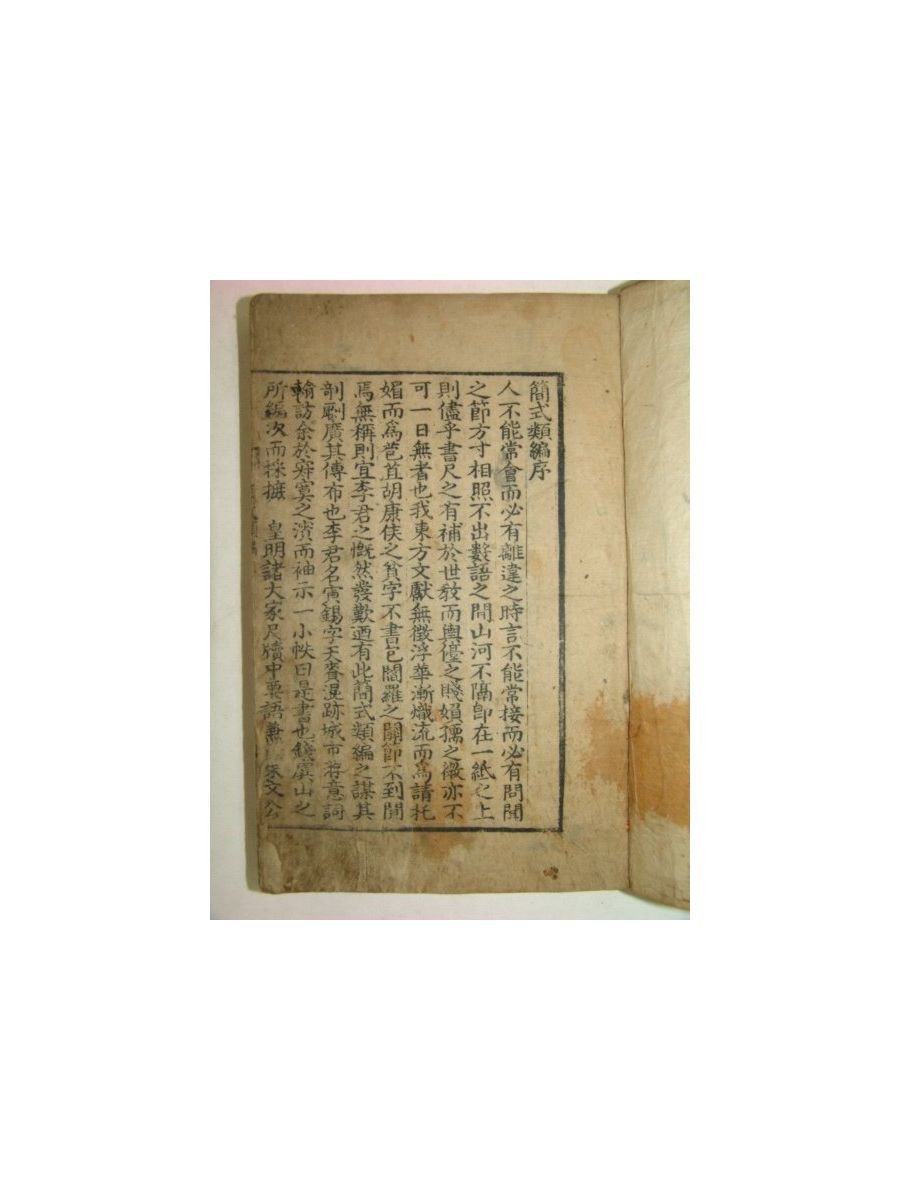 簡式類編序
人不能常會而必有離違之時言不能常接而必有問聞
之節方寸相照不出數語之間山河不隔卽在一紙之上
則儘乎書尺之有補於世敎而輿儓之賤嬪孺之微亦不
可一日無者也我東方文獻無徵浮華漸熾流而爲請托
媚而爲苞苴胡康侯之貧字不書包閻羅之關節不到聞
焉無稱則宜李君之慨然發歎迺有此簡式類編之謀其
剞劂廣其傳布也李君名寅錫字天賚混跡城市芳意詞
翰訪余於寂寞之濱而袖示一小帙曰是書也錢虞山之
所編次而採摭 皇明諸大家尺牘中要語兼 朱文公